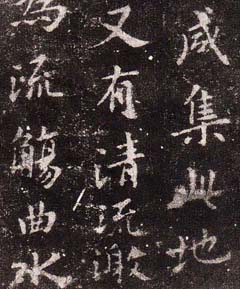 咸集此地
又有清流激
為流觴曲水